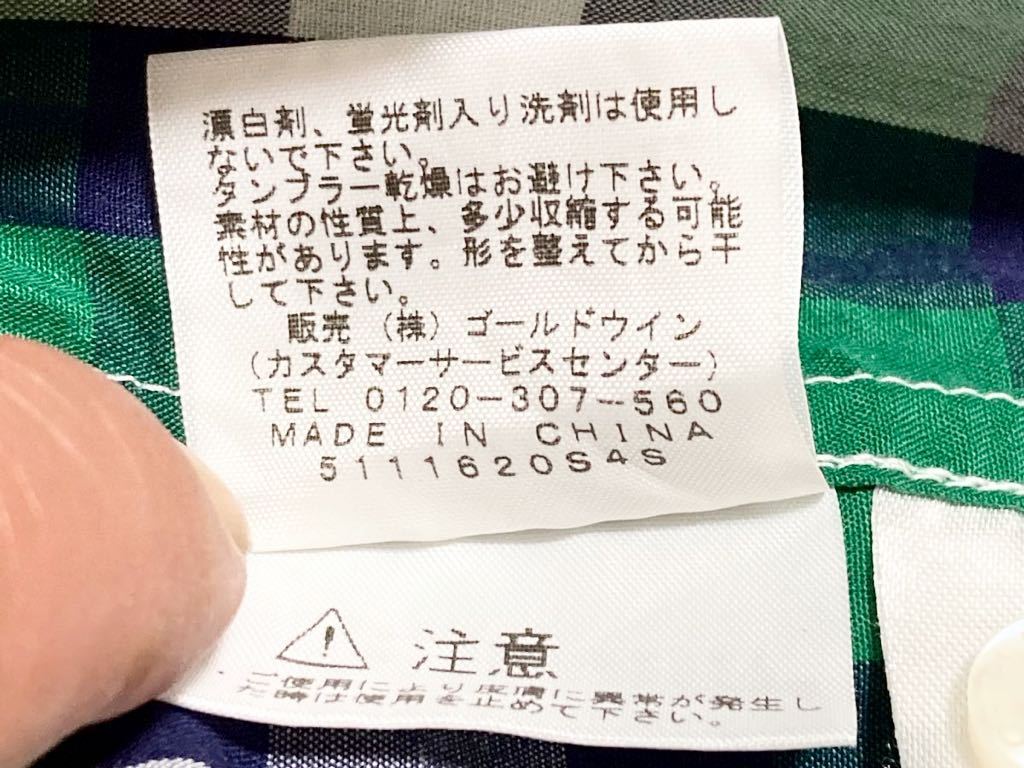 漂白剤、蛍光剤入り洗剤は使用し
ないで下さい。
タンブラー乾燥はお避け下さい。
素材の性質上、多少収縮する可能
性があります。形を整えてから干
して下さい。
販売（株）ゴールドウイン
（カスタマーサービスセンター）
TEL 0120-307-560
MADE IN CHINA
5111620S4S
注意
ご使用により皮膚に異常が発生し
た時は使用を止めて下さい。